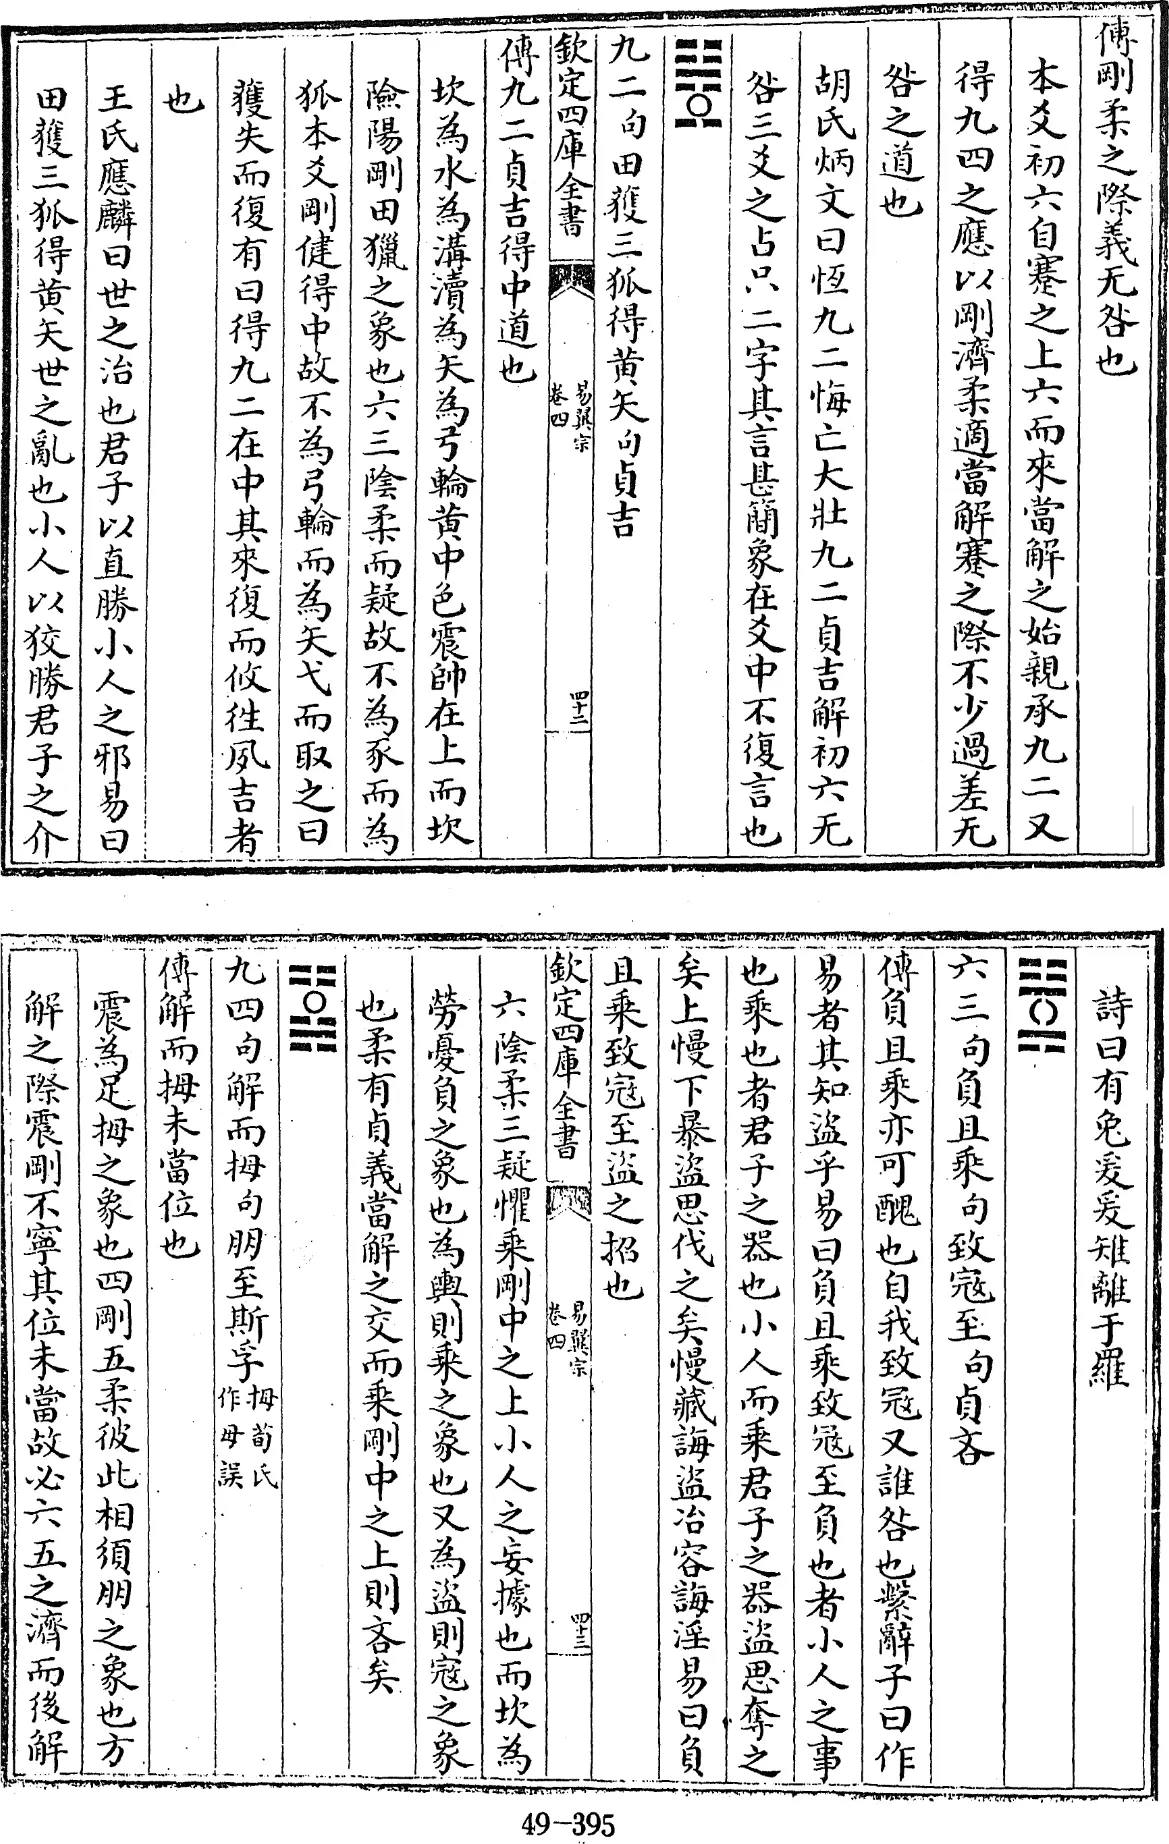 傳剛柔之際義无咎也
本爻初六自蹇之上六而來當解之始親承九二又
得九四之應以剛濟柔適當解蹇之際不少過差无
咎之道也
胡氏炳文曰恆九二悔亡大壯九二貞吉解初六无
咎三爻之占只二字其言甚簡象在爻中不復言也
九二句田獲三狐得黃矢句貞吉
欽定四庫全書
易翼宗
卷四
四十二
傳九二貞吉得中道也
坎為水為溝瀆為矢為弓輪黃中色震帥在上而坎
險陽剛田獵之象也六三陰柔而疑故不為豕而為
狐本爻剛健得中故不為弓輪而為矢弋而取之曰
獲失而復有曰得九二在中其來復而攸徃夙吉者
也
王氏應麟曰世之治也君子以直勝小人之邪易曰
田獲三狐得黃矢世之亂也小人以狡勝君子之介
詩曰有兔爰爰雉離于羅
六三句負且乘句致寇至句貞吝
傳負且乘亦可醜也自我致寇又誰咎也繫辭子曰作
易者其知盜乎易曰負且乘致寇至負也者小人之事
也乘也者君子之器也小人而乘君子之器盜思奪之
矣上慢下暴盜思伐之矣慢藏誨盜冶容誨淫易曰負
且乘致寇至盜之招也
欽定四庫全書
易翼宗
卷四
四十三
六陰柔三疑懼乘剛中之上小人之妄據也而坎為
勞憂負之象也為輿則乘之象也又為盜則寇之象
也柔有貞義當解之交而乘剛中之上則吝矣
九四句解而拇句朋至斯孚拇荀氏
作母誤
傳解而拇未當位也
震為足拇之象也四剛五柔彼此相須朋之象也方
解之際震剛不寧其位未當故必六五之濟而後解
49-395